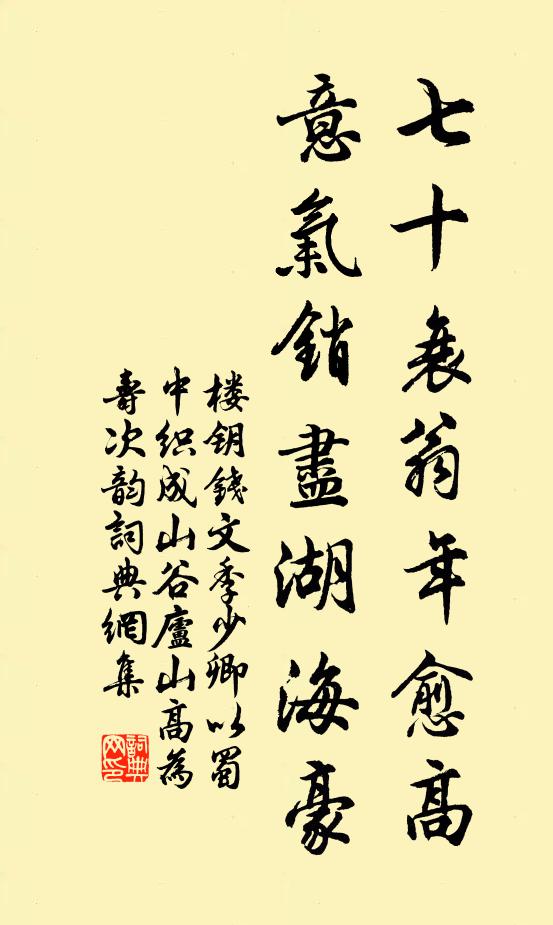 七十衰翁年愈高
意氣銷盡湖海豪
楼钥錢文季少卿以蜀
中织成山谷廬山高為
壽次韵詞典網集
詞典网印